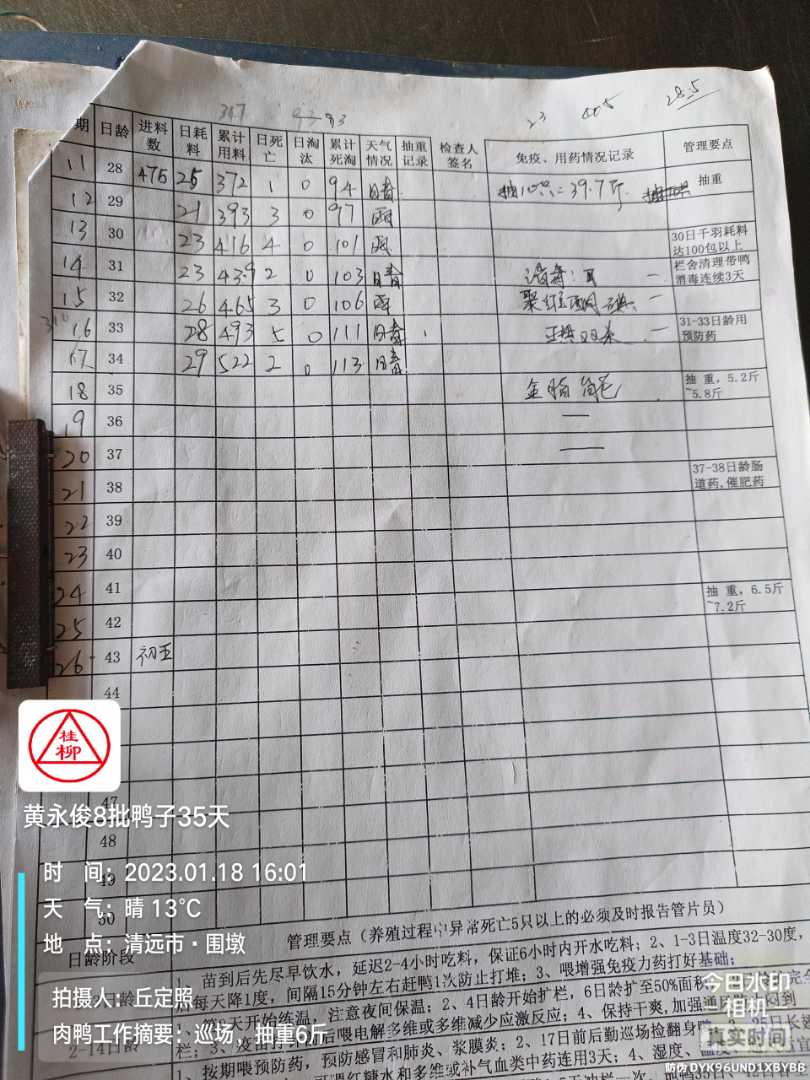 347 93
23 405 28.5
期 日龄 进料数 日耗料 累计用料 日死亡 日淘汰 累计死淘 天气情况 抽重记录 检查人签名 免疫、用药情况记录 管理要点
11 28 475 25 372 1 0 94 晴 抽10只=39.7斤 抽重
12 29 21 393 3 0 97 雨
13 30 23 416 4 0 101 雨 30日千羽耗料达100包以上
14 31 23 439 2 0 103 晴 消毒 一 栏舍清理带鸭消毒连续3天
15 32 26 465 3 0 106 聚维酮碘 一
16 33 28 493 5 0 111 晴 一 31-33日龄用预防药
17 34 29 522 2 0 113 晴
18 35 抽重, 5.2斤~5.8斤
19 36 一
20 37 一
21 38 37-38日龄肠道药,催肥药
22 39
23 40
24 41 抽重, 6.5斤~7.2斤
25 42
26 43 初五
44
47
48
49
50
桂柳
黄永俊8批鸭子35天
时 间: 2023.01.18 16:01
天 气: 晴 13℃
地 点: 清远市·围墩
拍摄人: 丘定照
肉鸭工作摘要: 巡场, 抽重6斤
日龄阶段 管理要点（养殖过程中异常死亡5只以上的必须及时报告管片员）
1、苗到后先尽早饮水，延迟2-4小时吃料，保证6小时内开水吃料；2、1-3日温度32-30度，
后每天降1度，间隔15分钟左右赶鸭1次防止打堆；3、喂增强免疫力药打好基础；
天开始练温，注意夜间保温；2、4日龄开始扩栏，6日龄扩至50%面积
2-14日龄 栏；3、疫苗 后喂电解多维或多维减少应激反应；4、保持干爽,加强通
1、按期喂预防药，预防感冒和肺炎、浆膜炎；2、17日前后勤巡场捡翻身
红糖水和多维或补气血类中药连用3天；4、湿度、温度
今日水印
相机
真实时间
防伪 DYK96UND1XBYBE